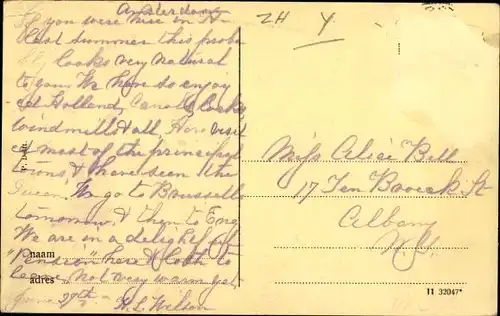 Amsterdam
If you were here in A-
last summer this proba
bly looks very natural
to you. We have so enjoy
ed Holland, Canals, locks,
windmills & all. Have visit
ed most of the principal
towns & have seen the
Queen. We go to Brussels
tomorrow & then to Eng.
We are in a delightful
"Pension" here & loath to
leave. Not very warm yet.
June 27th H. L. Wilson
P. Delft
naam
adres
ZH Y
Miss Alice Bell
17 Ten Broeck St
Albany
N.Y.
11 32047*